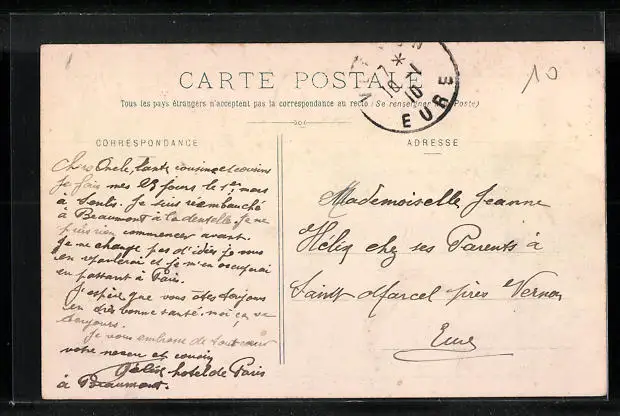 CARTE POSTALE
Tous les pays étrangers n'acceptent pas la correspondance au recto (Se renseigner Poste)
10
EURE
CORRESPONDANCE
Chers Oncle, tante cousine et cousins
je fais mes 23 jours le 1er mars
à Senlis. Je suis réembauché
à Beaumont à la dentelle. Je ne
puis rien commencer avant.
Je ne change pas d'idée je vous
en reparlerai et je m'en occuperai
en passant à Paris.
J'espère que vous êtes toujours
en très bonne santé. moi ça va
toujours.
Je vous embrasse de tout cœur
votre neveu et cousin
hotel de Paris
à Beaumont.
ADRESSE
Mademoiselle Jeanne
Hélix chez ses Parents à
Saint Marcel près Vernon
Eure